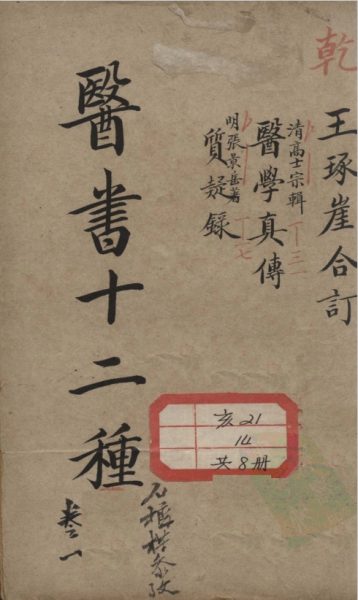 乾
王琢崖合訂
清高士宗輯
醫學真傳
明張景岳著
質疑錄
醫書十二種
卷一
亥21
14
共8册